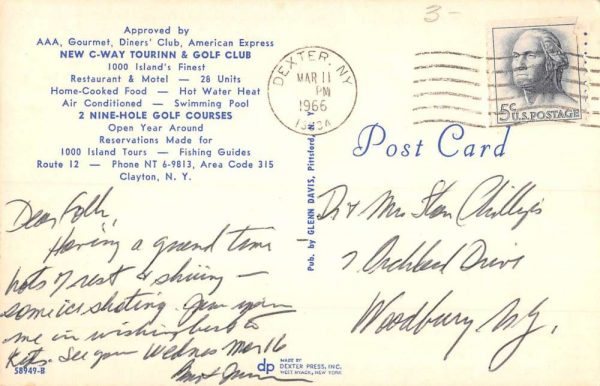 Approved by
AAA, Gourmet, Diners' Club, American Express
NEW C-WAY TOURINN & GOLF CLUB
1000 Island's Finest
Restaurant & Motel — 28 Units
Home-Cooked Food — Hot Water Heat
Air Conditioned — Swimming Pool
2 NINE-HOLE GOLF COURSES
Open Year Around
Reservations Made for
1000 Island Tours — Fishing Guides
Route 12 — Phone NT 6-9813, Area Code 315
Clayton, N. Y.
Dear Folk,
Having a grand time
lots of rest & skiing —
some ice skating. Join
me in wishing best to
See you Wednes Mar 16
58949-B
Pub. by GLENN DAVIS, Pittsford, N. Y.
dp
MADE BY
DEXTER PRESS, INC.
WEST NYACK, NEW YORK
3-
DEXTER, NY
MAR 11
PM
1966
13634
5c U.S. POSTAGE
Post Card
Dr & Mrs Stan Phillips
7 Orchard Drive
Woodbury N.J.